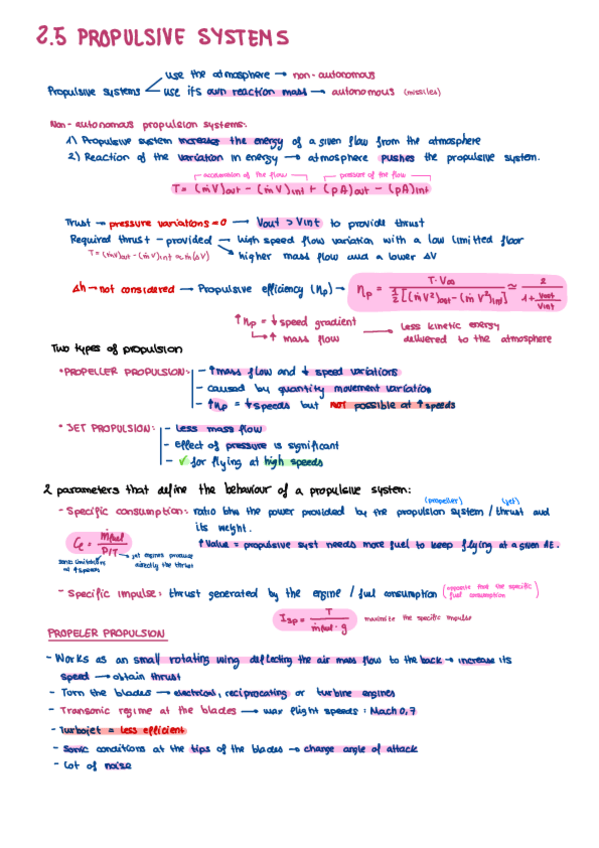 2.5 PROPULSIVE SYSTEMS
use the atmosphere → non-autonomous
Propulsive systems
use its own reaction mass → autonomous (missiles)
Non-autonomous propulsion systems:
1) Propulsive system increases the energy of a given flow from the atmosphere
2) Reaction of the variation in energy → atmosphere pushes the propulsive system.
acceleration of the flow pressure of the flow
T = (ṁV)out - (ṁV)int + (pA)out - (pA)int
Trust → pressure variations = 0 → Vout > Vint to provide thrust
Required thrust - provided → high speed flow variation with a low limitted floor
T = (ṁV)out - (ṁV)int ∝ ṁ(ΔV) → higher mass flow and a lower ΔV
Δh → not considered → Propulsive efficiency (ηp) → ηp = T·V∞ / ½[(ṁV²)out - (ṁV²)int] ≃ 2 / 1 + Vout/Vint
↑ηp = ↓speed gradient → less kinetic energy
↳ ↑ mass flow delivered to the atmosphere
Two types of propulsion
• PROPELLER PROPULSION: - ↑mass flow and ↓ speed variations
- caused by quantity movement variation
- ↑ηp = ↓speeds but not possible at ↑speeds
• JET PROPULSION: - less mass flow
- effect of pressure is significant
- ✓ for flying at high speeds
2 parameters that define the behaviour of a propulsive system:
(propeller) (jet)
- Specific consumption: ratio btw the power provided by the propulsion system / thrust and
its weight.
↑Value = propulsive syst needs more fuel to keep flying at a given ΔE.
= ṁfuel / P/T → jet engines produce
directly the thrust
at ↑speeds
- Specific impulse: thrust generated by the engine / fuel consumption (opposite that the specific
fuel consumption)
Isp = T / ṁfuel · g maximize the specific impulse
PROPELER PROPULSION
- Works as an small rotating wing deflecting the air mass flow to the back → increase its
speed → obtain thrust
- Torn the blades → electrical, reciprocating or turbine engines
- Transonic regime at the blades → max flight speeds: Mach 0,7
- Turbojet = less efficient
- Sonic conditions at the tips of the blades → change angle of attack
- Lot of noise